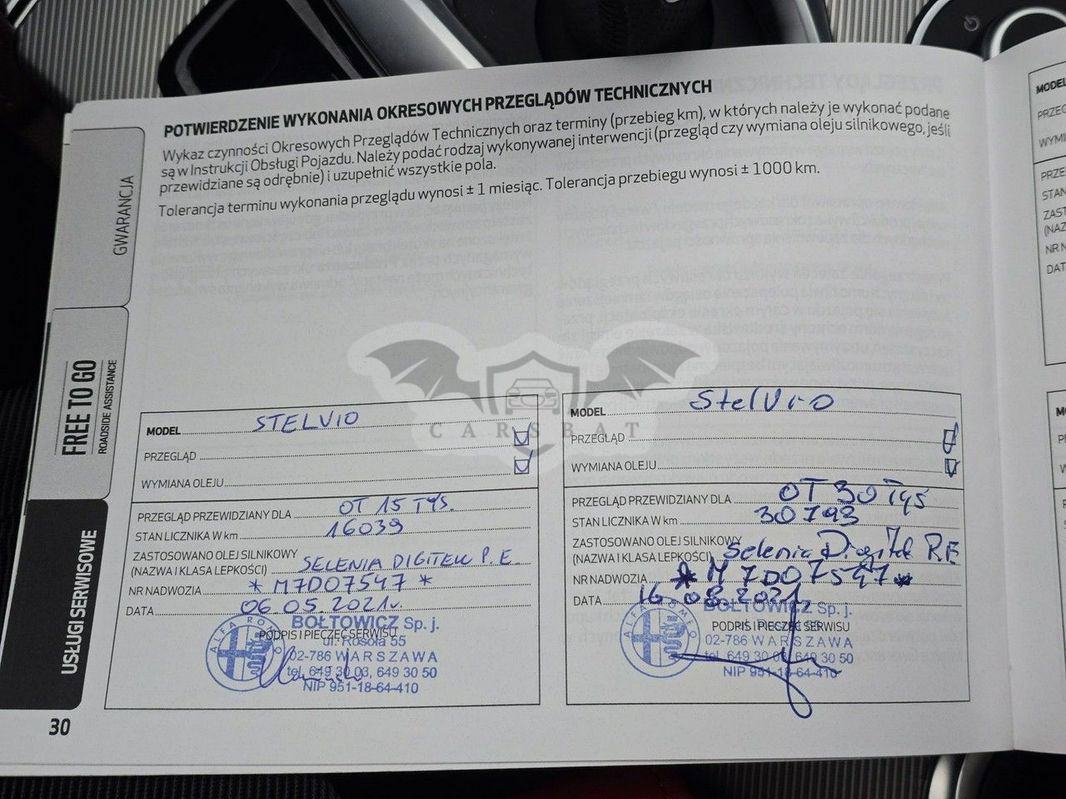 POTWIERDZENIE WYKONANIA OKRESOWYCH PRZEGLĄDÓW TECHNICZNYCH
Wykaz czynności Okresowych Przeglądów Technicznych oraz terminy (przebieg km), w których należy je wykonać podane
są w Instrukcji Obsługi Pojazdu. Należy podać rodzaj wykonywanej interwencji (przegląd czy wymiana oleju silnikowego, jeśli
przewidziane są odrębnie) i uzupełnić wszystkie pola.
Tolerancja terminu wykonania przeglądu wynosi ± 1 miesiąc. Tolerancja przebiegu wynosi ± 1000 km.
GWARANCJA
FREE TO GO
ROADSIDE ASSISTANCE
USŁUGI SERWISOWE
30
CARSBAT
MODEL STELVIO
PRZEGLĄD
WYMIANA OLEJU
PRZEGLĄD PRZEWIDZIANY DLA OT 15 TYS.
STAN LICZNIKA W km 16039
ZASTOSOWANO OLEJ SILNIKOWY
(NAZWA I KLASA LEPKOŚCI) SELENIA DIGITEK P.E
NR NADWOZIA * M7D07547 *
DATA 06 05.2021r.
BOŁTOWICZ Sp. j.
PODPIS I PIECZĘĆ SERWISU
ul. Rosoła 55
02-786 WARSZAWA
tel. 649 30 03, 649 30 50
NIP 951-18-64-410
ALFA ROMEO
MODEL Stelvio
PRZEGLĄD
WYMIANA OLEJU
PRZEGLĄD PRZEWIDZIANY DLA OT 30 Tys
STAN LICZNIKA W km 30793
ZASTOSOWANO OLEJ SILNIKOWY
(NAZWA I KLASA LEPKOŚCI) Selenia P.E
NR NADWOZIA * M7D07547 *
DATA 16.08.2021
BOŁTOWICZ Sp. j.
PODPIS I PIECZĘĆ SERWISU
02-786 WARSZAWA
tel. 649 30 03, 649 30 50
NIP 951-18-64-410
ALFA ROMEO
MODEL